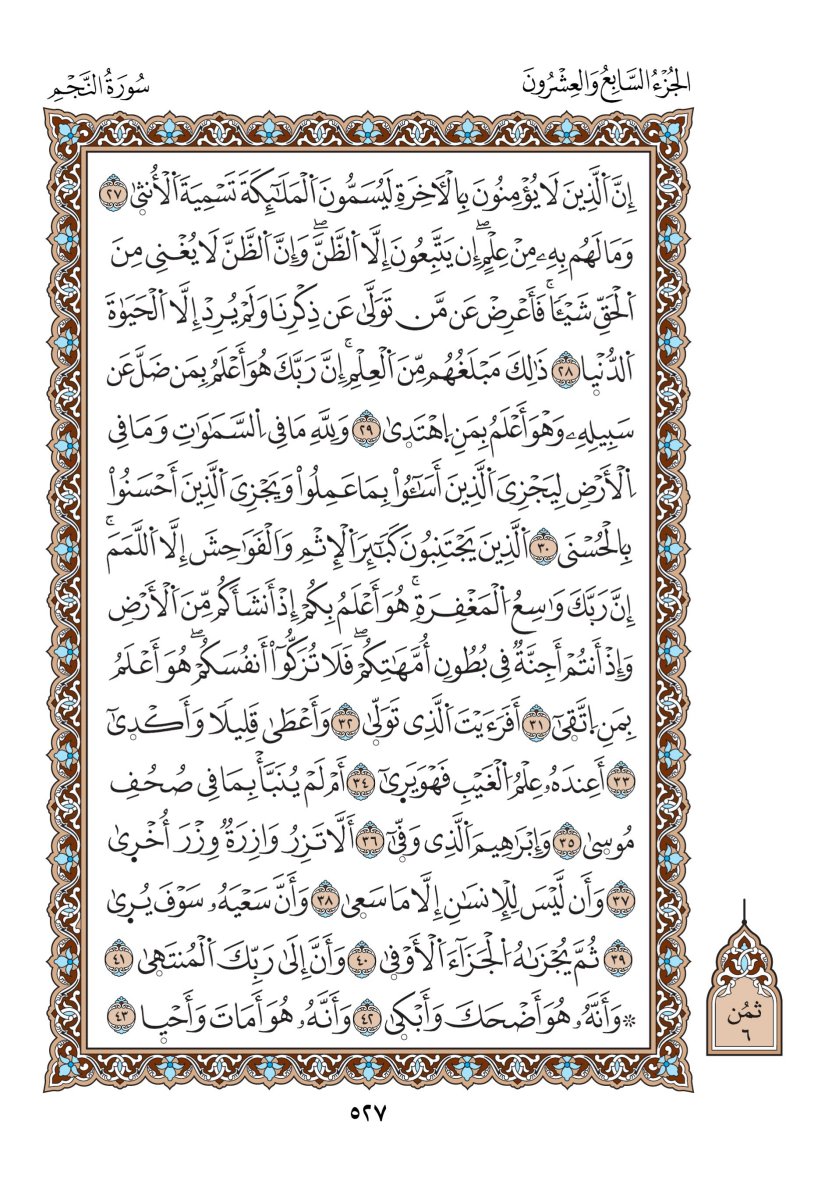 الجُزْءُ السَّابِعُ وَالعِشْرُونَ
سُورَةُ النَّجْمِ
إِنَّ اَ۬لَّذِينَ لَا يُؤْمِنُونَ بِالْأٓخِرَةِ لَيُسَمُّونَ اَ۬لْمَلَٰٓئِكَةَ تَسْمِيَةَ اَ۬لْأُنث۪يٰ ٢٧
وَمَا لَهُم بِهِۦ مِنْ عِلْمٍۖ إِن يَتَّبِعُونَ إِلَّا اَ۬لظَّنَّۖ وَإِنَّ اَ۬لظَّنَّ لَا يُغْنِى مِنَ
اَ۬لْحَقِّ شَيْـًٔاۚ فَأَعْرِضْ عَن مَّن تَوَلَّىٰ عَن ذِكْرِنَا وَلَمْ يُرِدْ إِلَّا اَ۬لْحَيَوٰةَ
اَ۬لدُّنْي۪ا ٢٨ ذَٰلِكَ مَبْلَغُهُم مِّنَ اَ۬لْعِلْمِۚ إِنَّ رَبَّكَ هُوَ أَعْلَمُ بِمَن ضَلَّ عَن
سَبِيلِهِۦ وَهُوَ أَعْلَمُ بِمَنِ اِ۪هْتَد۪يٰ ٢٩ وَلِلَّهِ مَا فِى اِ۬لسَّمَٰوَٰتِ وَمَا فِى
اِ۬لْأَرْضِ لِيَجْزِىَ اَ۬لَّذِينَ أَسَٰٓـُٔواْ بِمَا عَمِلُواْ وَيَجْزِىَ اَ۬لَّذِينَ أَحْسَنُواْ
بِالْحُسْنَى ٣٠ اَ۬لَّذِينَ يَجْتَنِبُونَ كَبَٰٓئِرَ اَ۬لْإِثْمِ وَالْفَوَٰحِشَ إِلَّا اَ۬للَّمَمَۚ
إِنَّ رَبَّكَ وَٰسِعُ اُ۬لْمَغْفِرَةِۚ هُوَ أَعْلَمُ بِكُمْ إِذْ أَنشَأَكُم مِّنَ اَ۬لْأَرْضِ
وَإِذْ أَنتُمْ أَجِنَّةٌ فِى بُطُونِ أُمَّهَٰتِكُمْۖ فَلَا تُزَكُّوٓاْ أَنفُسَكُمْۖ هُوَ أَعْلَمُ
بِمَنِ اِ۪تَّق۪يٰٓ ٣١ أَفَرَءَيْتَ اَ۬لَّذِى تَوَلّ۪يٰ ٣٢ وَأَعْطَىٰ قَلِيلًا وَأَكْد۪يٰٓ
٣٣ أَعِندَهُۥ عِلْمُ اُ۬لْغَيْبِ فَهُوَ يَر۪يٰٓ ٣٤ أَمْ لَمْ يُنَبَّأْ بِمَا فِى صُحُفِ
مُوس۪يٰ ٣٥ وَإِبْرَٰهِيمَ اَ۬لَّذِى وَفّ۪يٰٓ ٣٦ أَلَّا تَزِرُ وَازِرَةٌ وِزْرَ أُخْر۪يٰ
٣٧ وَأَن لَّيْسَ لِلْإِنسَٰنِ إِلَّا مَا سَع۪يٰ ٣٨ وَأَنَّ سَعْيَهُۥ سَوْفَ يُر۪يٰ
٣٩ ثُمَّ يُجْزَىٰهُ اُ۬لْجَزَآءَ اَ۬لْأَوْف۪يٰ ٤٠ وَأَنَّ إِلَىٰ رَبِّكَ اَ۬لْمُنتَه۪يٰ ٤١
*وَأَنَّهُۥ هُوَ أَضْحَكَ وَأَبْك۪يٰ ٤٢ وَأَنَّهُۥ هُوَ أَمَاتَ وَأَحْي۪ا ٤٣
ثمُن
٦
٥٢٧